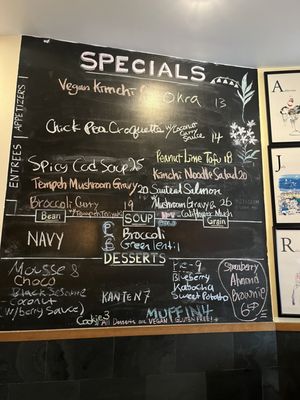 SPECIALS
APPETIZERS
Vegan Kimchi Okra 13
Chick Pea Croquette w/Coconut Curry Sauce 14
ENTREES
Spicy Cod Soup 25
Peanut Lime Tofu 18
Tempeh Mushroom Gravy 20
Kimchi Noodle Salad 20
Sauteed Salmon
Broccoli Curry 19
Mushroom Gravy & 26
Bean
SOUP
Grain
NAVY
Broccoli
B Green lentil
DESSERTS
Mousse &
Choco
Black Sesame
Coconut
(w/berry Sauce)
KANTEN 7
Cookie 3
Pie - 9
Blueberry
Kabocha
Sweet Potato
MUFFIN 4
All Desserts are VEGAN & GLUTEN FREE!
Strawberry
Almond
Brownie
65
A
J
R